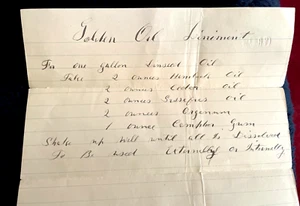 Golden Oil Liniment
For one gallon Linseed Oil
Take 2 ounces Hemlock Oil
2 ounces Cedar Oil
2 ounces Oil
2 ounces Origanum
1 ounce Camphor Gum
Shake up well until all is Dissolved
To Be used Externally or Internally